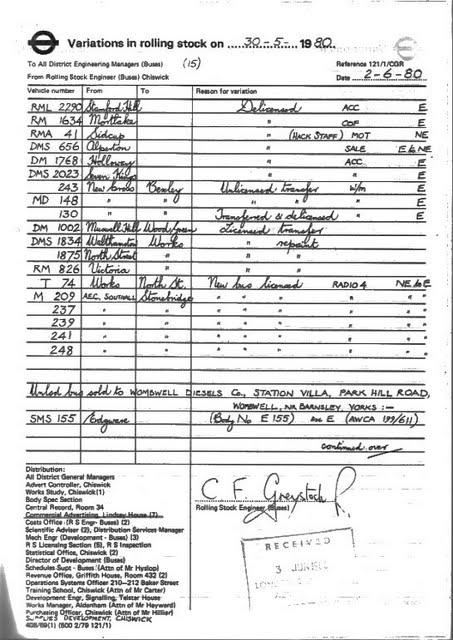 Variations in rolling stock on 30-5- 1980.
To All District Engineering Managers (Buses) (15)
Reference 121/1/CGR
From Rolling Stock Engineer (Buses) Chiswick
Date 2-6-80
Vehicle number From To Reason for variation
RML 2290 Stamford Hill Delicensed ACC E
RM 1634 Mortlake " COF E
RMA 41 Sidcup " (HACK STAFF) MOT NE
DMS 656 Alperton " SALE E to NE
DM 1768 Holloway " ACC E
DMS 2023 Seven Kings " " E
243 New Cross Bexley Unlicensed transfer W/m E
MD 148 " " " " E
130 " " Transferred & delicensed " E
DM 1002 Muswell Hill Wood Green Licensed transfer
DMS 1834 Walthamstow Works " repaint
1875 North Street " " "
RM 826 Victoria " " "
T 74 Works North St. New bus licensed RADIO 4 NE to E
M 209 AEC, SOUTHALL Stonebridge " " " " "
237 " " " " " "
239 " " " " " "
241 " " " " " "
248 " " " " " "
Unlcd bus sold to WOMBWELL DIESELS Co., STATION VILLA, PARK HILL ROAD,
WOMBWELL, NR BARNSLEY, YORKS :-
SMS 155 Edgware (Body No E 155) E (AWCA 199/611)
continued over
Distribution:
All District General Managers
Advert Controller, Chiswick
Works Study, Chiswick(1)
Body Spec Section
Central Record, Room 34
Commercial Advertising, Lindsey House (7)
Costs Office (R S Engr- Buses) (2)
Scientific Adviser (2), Distribution Services Manager
Mech Engr (Development - Buses) (3)
R S Licensing Section (5), R S Inspection
Statistical Office, Chiswick (2)
Director of Development (Buses)
Schedules Supt - Buses (Attn of Mr Hyslop)
Revenue Office, Griffith House, Room 432 (2)
Operations Systems Officer 210-212 Baker Street
Training School, Chiswick (Attn of Mr Carter)
Development Engr, Signalling, Telstar House
Works Manager, Aldenham (Attn of Mr Hayward)
Purchasing Officer, Chiswick (Attn of Mr Hillier)
SUPPLIES DEVELOPMENT, CHISWICK
408/69(1) (500 2/79 121/1)
C F Greystock
Rolling Stock Engineer (Buses)
RECEIVED
3 JUN